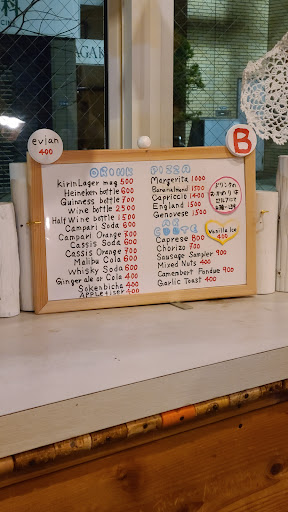 科
AGAK
evian
400
B
DRINK
KirinLager mug 500
Heineken bottle 600
Guinness bottle 700
Wine bottle 2500
Half Wine bottle 1500
Campari Soda 600
Campari Orange 700
Cassis Soda 600
Cassis Orange 700
Malibu Cola 600
Whisky Soda 600
Gingerale or Cola 400
Sokenbicha 400
Appletiser 400
PIZZA
Margerita 1000
Capriccio 1400
England 1500
Genovese 1500
Caprese 800
Chorizo 700
Sausage Sampler 900
Mixed Nuts 400
Camembert Fondue 900
Garlic Toast 400
ドリンクの
おかわりは
Vanilla Ice
400